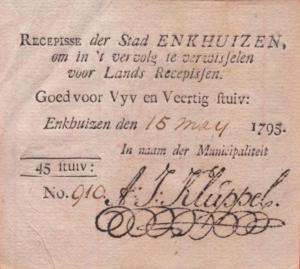 RECEPISSE der Stad ENKHUIZEN,
om in 't vervolg te verwisselen
voor Lands Recepissen.
Goed voor Vyv en Veertig stuiv:
Enkhuizen den 15 may 1795.
In naam der Municipaliteit
45 stuiv:
No. 910. A. J. Kluppel.